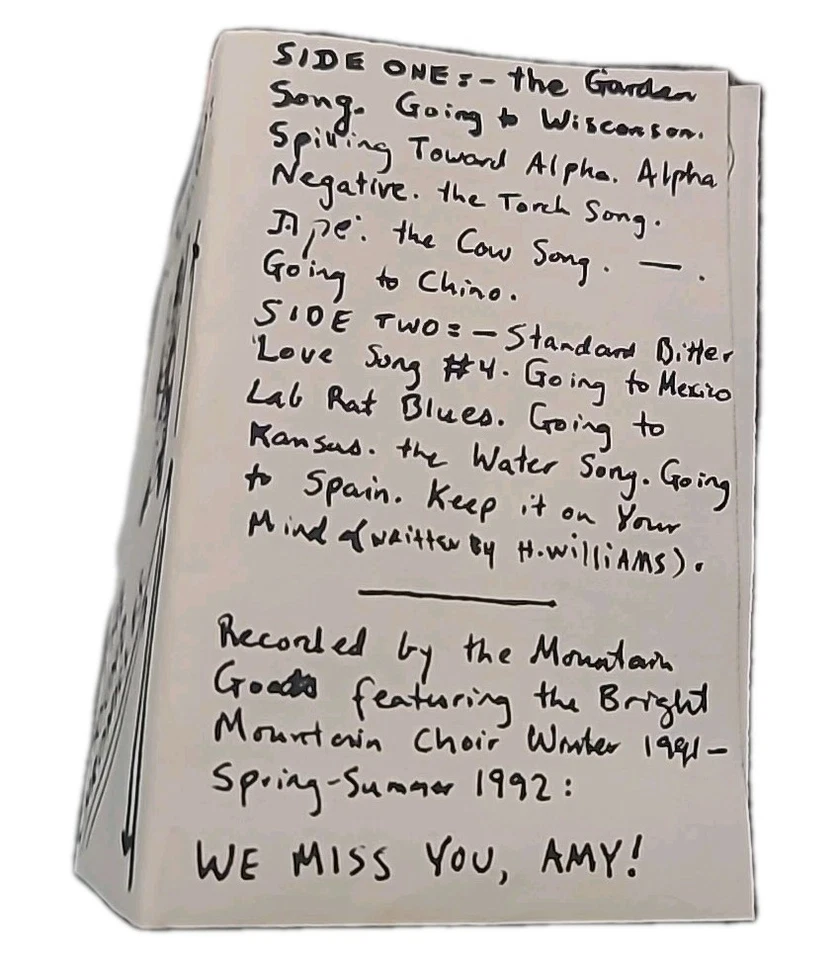 SIDE ONE:- the Garden
Song. Going to Wisconson.
Spilling Toward Alpha. Alpha
Negative. the Torch Song.
Ape. the Cow Song. — .
Going to Chino.
SIDE TWO:- Standard Bitter
Love Song #4. Going to Mexico
Lab Rat Blues. Going to
Kansas. the Water Song. Going
to Spain. Keep it on Your
Mind (written by H. williAMS).
Recorded by the Mountain
Goats featuring the Bright
Mountain Choir Winter 1991-
Spring-Summer 1992:
WE MISS YOU, AMY!